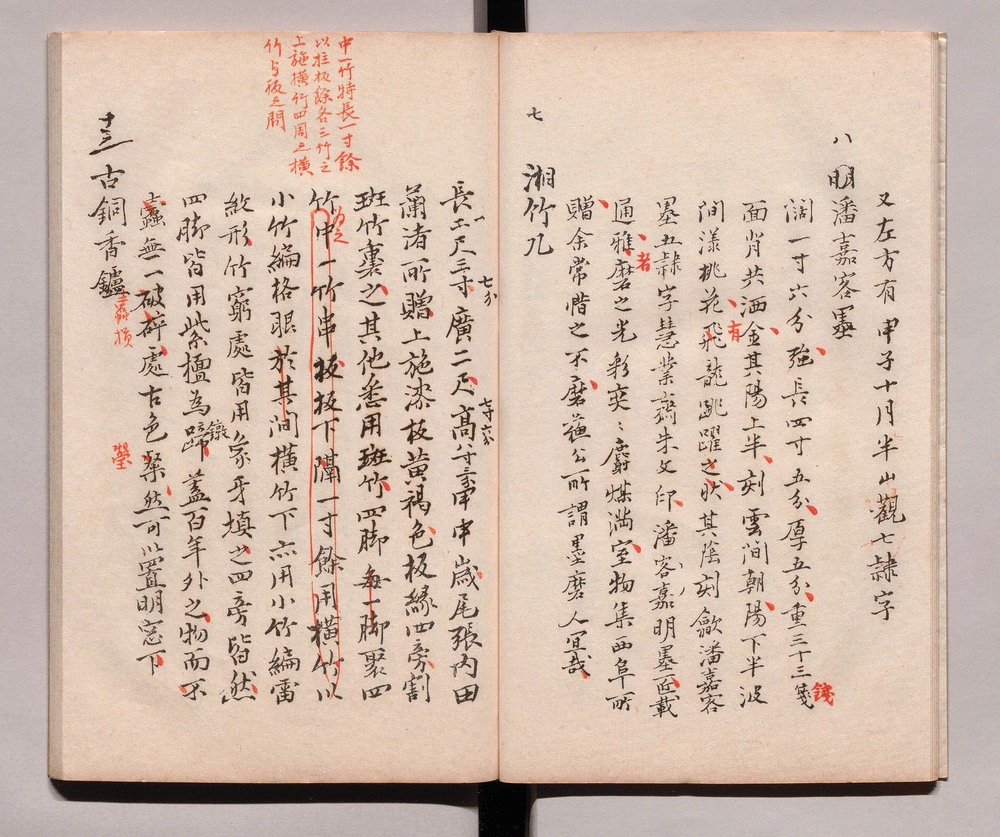 又左方有甲子十月半山觀七隷字
八 明潘嘉客墨
濶一寸六分強長四寸五分厚五分重三十三箋
錢
面背共洒金其陽上半刻雲間朝陽下半波
有
間漾桃花飛龍跳躍之状其陰刻歙潘嘉客
墨五隷字慧業齋朱文印潘客嘉明墨匠載
者
通雅磨之光彩奕〻麝煤満室物集西阜所
贈余常惜之不磨蘓公所謂墨磨人宜哉
七 湘竹几
長二尺三寸七分廣二尺高七寸六分甲申歳尾張内田
蘭渚所贈上施漆板黄褐色板縁四旁割
斑竹裹之其他悉用斑竹四脚毎一脚聚四
竹為之中一竹串板板下隔一寸餘用横竹以
中一竹特長一寸餘
以拄板餘各三竹之
上施横竹四周之横
竹与板之間
小竹編格眼於其間横竹下亦用小竹編雷
紋形竹窮處皆用象牙填之四旁皆然
四脚皆用紫檀為蹄蓋百年外之物而不
蠧無一破碎處古色粲然可以置明窓下
蠧損
瑩
十三 古銅香鑪